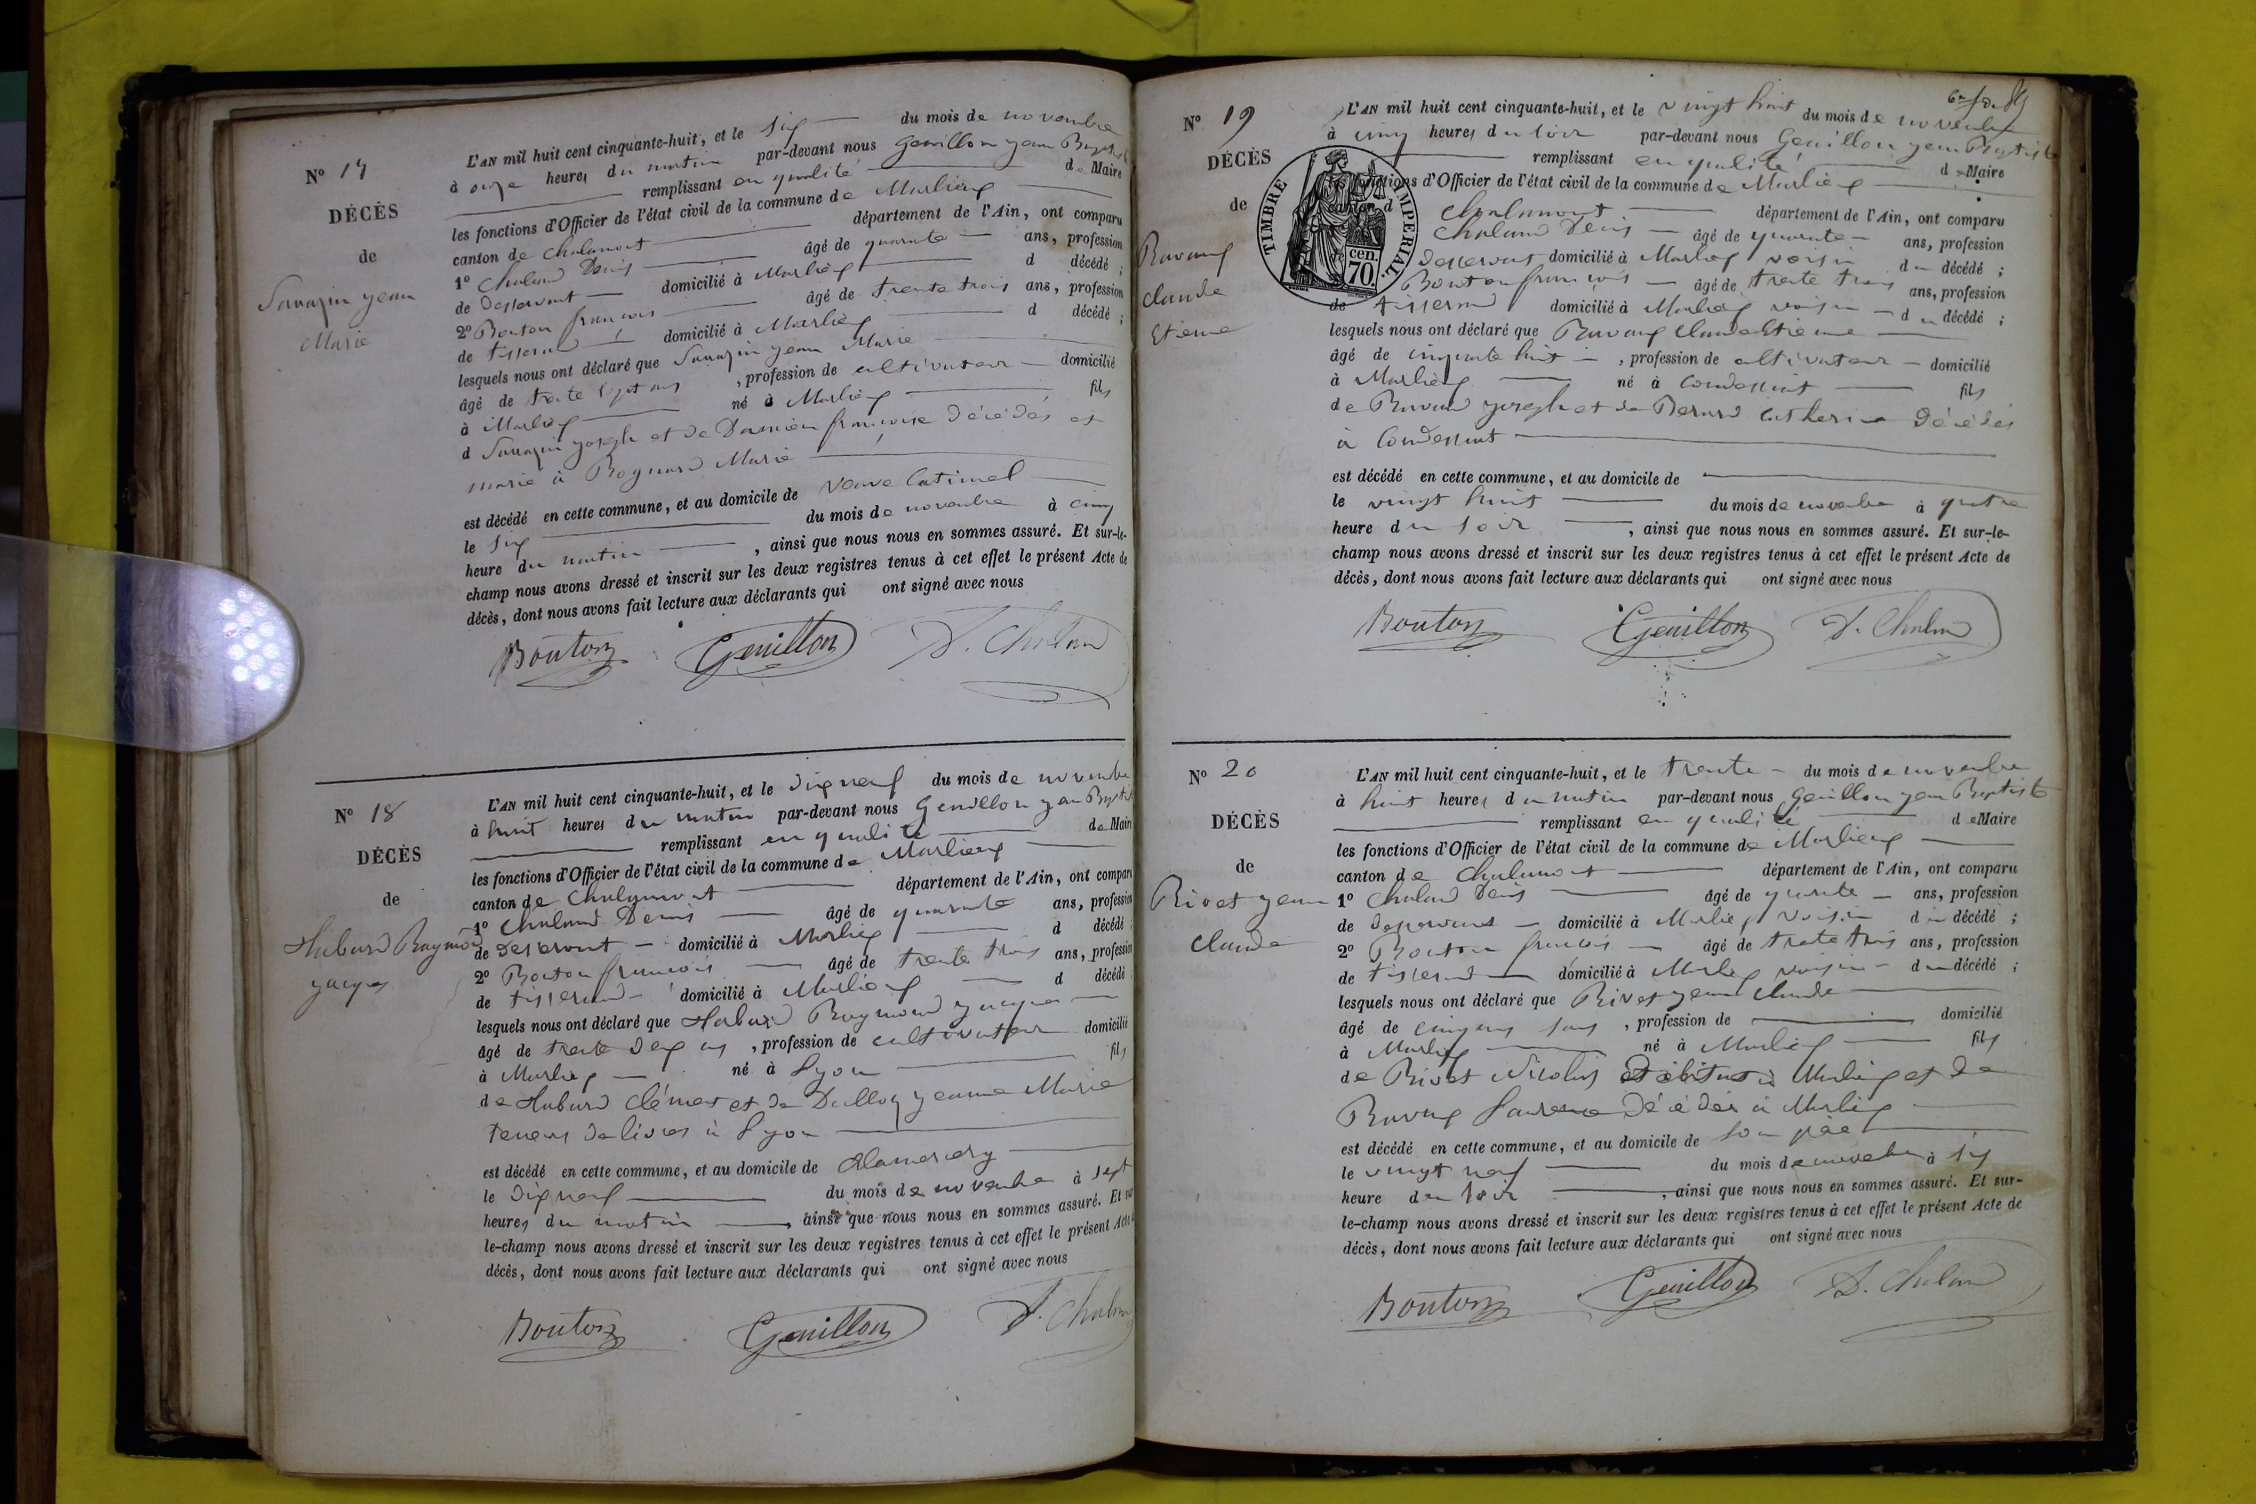 N° 17
DÉCÈS
de
Savazin yean
Marie
L'AN mil huit cent cinquante-huit, et le six du mois de novembre
à onze heures du matin par-devant nous Genillon yean Baptiste
remplissant en qualité de Maire
les fonctions d'Officier de l'état civil de la commune de Marlieux
canton de Chalamont département de l'Ain, ont comparu
1° Chaland Denis âgé de quarante ans, profession
de desservant domicilié à Marlieux d décédé ;
2° Bouton françois âgé de trente trois ans, profession
de tisserand domicilié à Marlieux d décédé ;
lesquels nous ont déclaré que Savazin yean Marie
âgé de trente sept ans , profession de cultivateur domicilié
à Marlieux né à Marlieux fils
d Savazin yoseph et de françoise décédés et
marié à Bognard Marie
est décédé en cette commune, et au domicile de veuve Catimel
le six du mois de novembre à cinq
heure du matin , ainsi que nous nous en sommes assuré. Et sur-le-
champ nous avons dressé et inscrit sur les deux registres tenus à cet effet le présent Acte de
décès, dont nous avons fait lecture aux déclarants qui ont signé avec nous
Bouton Genillon D. Chaland
N° 18
DÉCÈS
de
Hubard Raymond
yacques
L'AN mil huit cent cinquante-huit, et le dix neuf du mois de novembre
à huit heures du matin par-devant nous Genillon yean Baptiste
remplissant en qualité de Maire
les fonctions d'Officier de l'état civil de la commune de Marlieux
canton de Chalamont département de l'Ain, ont comparu
1° Chaland Denis âgé de quarante ans, profession
de desservant domicilié à Marlieux d décédé
2° Bouton francois âgé de trente trois ans, profession
de tisserand domicilié à Marlieux d décédé
lesquels nous ont déclaré que Hubard Raymond yacques
âgé de trente deux ans , profession de cultivateur domicilié
à Marlieux né à Lyon fils
de Hubard Clément et de yeanne Marie
teneurs de livres à Lyon
est décédé en cette commune, et au domicile de
le dix neuf du mois de novembre à sept
heures du matin , ainsi que nous nous en sommes assuré. Et sur
le-champ nous avons dressé et inscrit sur les deux registres tenus à cet effet le présent Acte
décès, dont nous avons fait lecture aux déclarants qui ont signé avec nous
Bouton Genillon D. Chaland
N° 19
DÉCÈS
de
Ravaux
claude
Etiene
TIMBRE IMPERIAL.
70 cen.
L'AN mil huit cent cinquante-huit, et le vingt huit du mois de novembre
à cinq heures du soir par-devant nous Genillon yean Baptiste
remplissant en qualité de Maire
les fonctions d'Officier de l'état civil de la commune de Marlieux
canton d Chalamont département de l'Ain, ont comparu
Chaland Denis âgé de quarante ans, profession
desservant domicilié à Marlieux voisin du décédé ;
Bouton francois âgé de trente trois ans, profession
de tisserand domicilié à Marlieux voisin du décédé ;
lesquels nous ont déclaré que Ravaux Claude Etienne
âgé de cinquante huit , profession de cultivateur domicilié
à Marlieux né à Condessiat fils
de Ravaux yoseph et de Bernard Catherine décédés
à Condessiat
est décédé en cette commune, et au domicile de
le vingt huit du mois de novembre à quatre
heure du soir , ainsi que nous nous en sommes assuré. Et sur-le-
champ nous avons dressé et inscrit sur les deux registres tenus à cet effet le présent Acte de
décès, dont nous avons fait lecture aux déclarants qui ont signé avec nous
Bouton Genillon D. Chaland
N° 20
DÉCÈS
de
Rivet yean
claude
L'AN mil huit cent cinquante-huit, et le trente du mois de novembre
à huit heures du matin par-devant nous Genillon yean Baptiste
remplissant en qualité de Maire
les fonctions d'Officier de l'état civil de la commune de Marlieux
canton de Chalamont département de l'Ain, ont comparu
1° Chaland Denis âgé de quarante ans, profession
de desservant domicilié à Marlieux voisin du décédé ;
2° Bouton francois âgé de trente trois ans, profession
de tisserand domicilié à Marlieux voisin du décédé ;
lesquels nous ont déclaré que Rivet yean claude
âgé de cinq ans , profession de domicilié
à Marlieux né à Marlieux fils
de Rivet Nicolas à Marlieux et de
Ravaux Laurence décédés à Marlieux
est décédé en cette commune, et au domicile de son père
le vingt neuf du mois de novembre à six
heure du soir , ainsi que nous nous en sommes assuré. Et sur-
le-champ nous avons dressé et inscrit sur les deux registres tenus à cet effet le présent Acte de
décès, dont nous avons fait lecture aux déclarants qui ont signé avec nous
Bouton Genillon D. Chaland